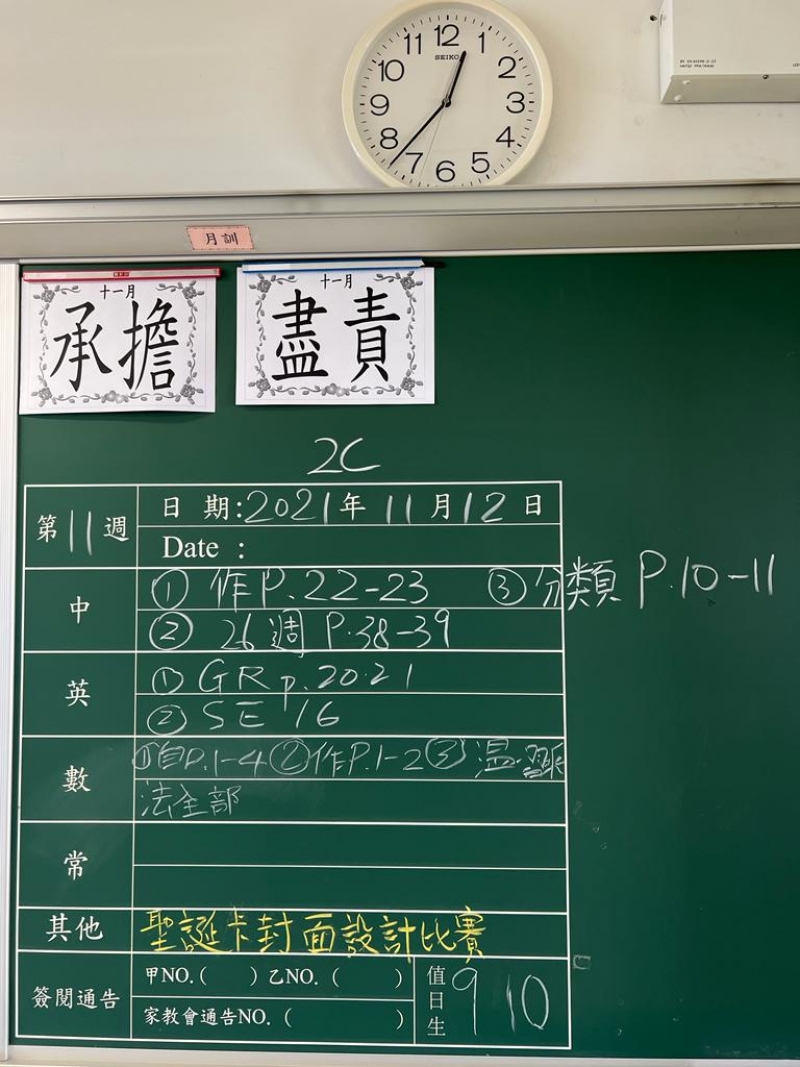 11 12 1
10 2
9 3
8 4
7 6 5
SEIKO
月訓
十一月
承擔
十一月
盡責
2C
第11週
日 期:2021年11月12日
Date :
中
① 作P.22-23 ③ 分類 P.10-11
② 26週 P.38-39
英
① GR p.20-21
② SE 16
數
①自P.1-4 ②作P.1-2 ③ 温習乘
法全部
常
其他 聖誕卡封面設計比賽
簽閱通告
甲NO.( ) 乙NO. ( )
家教會通告NO. ( )
值日生 9 10